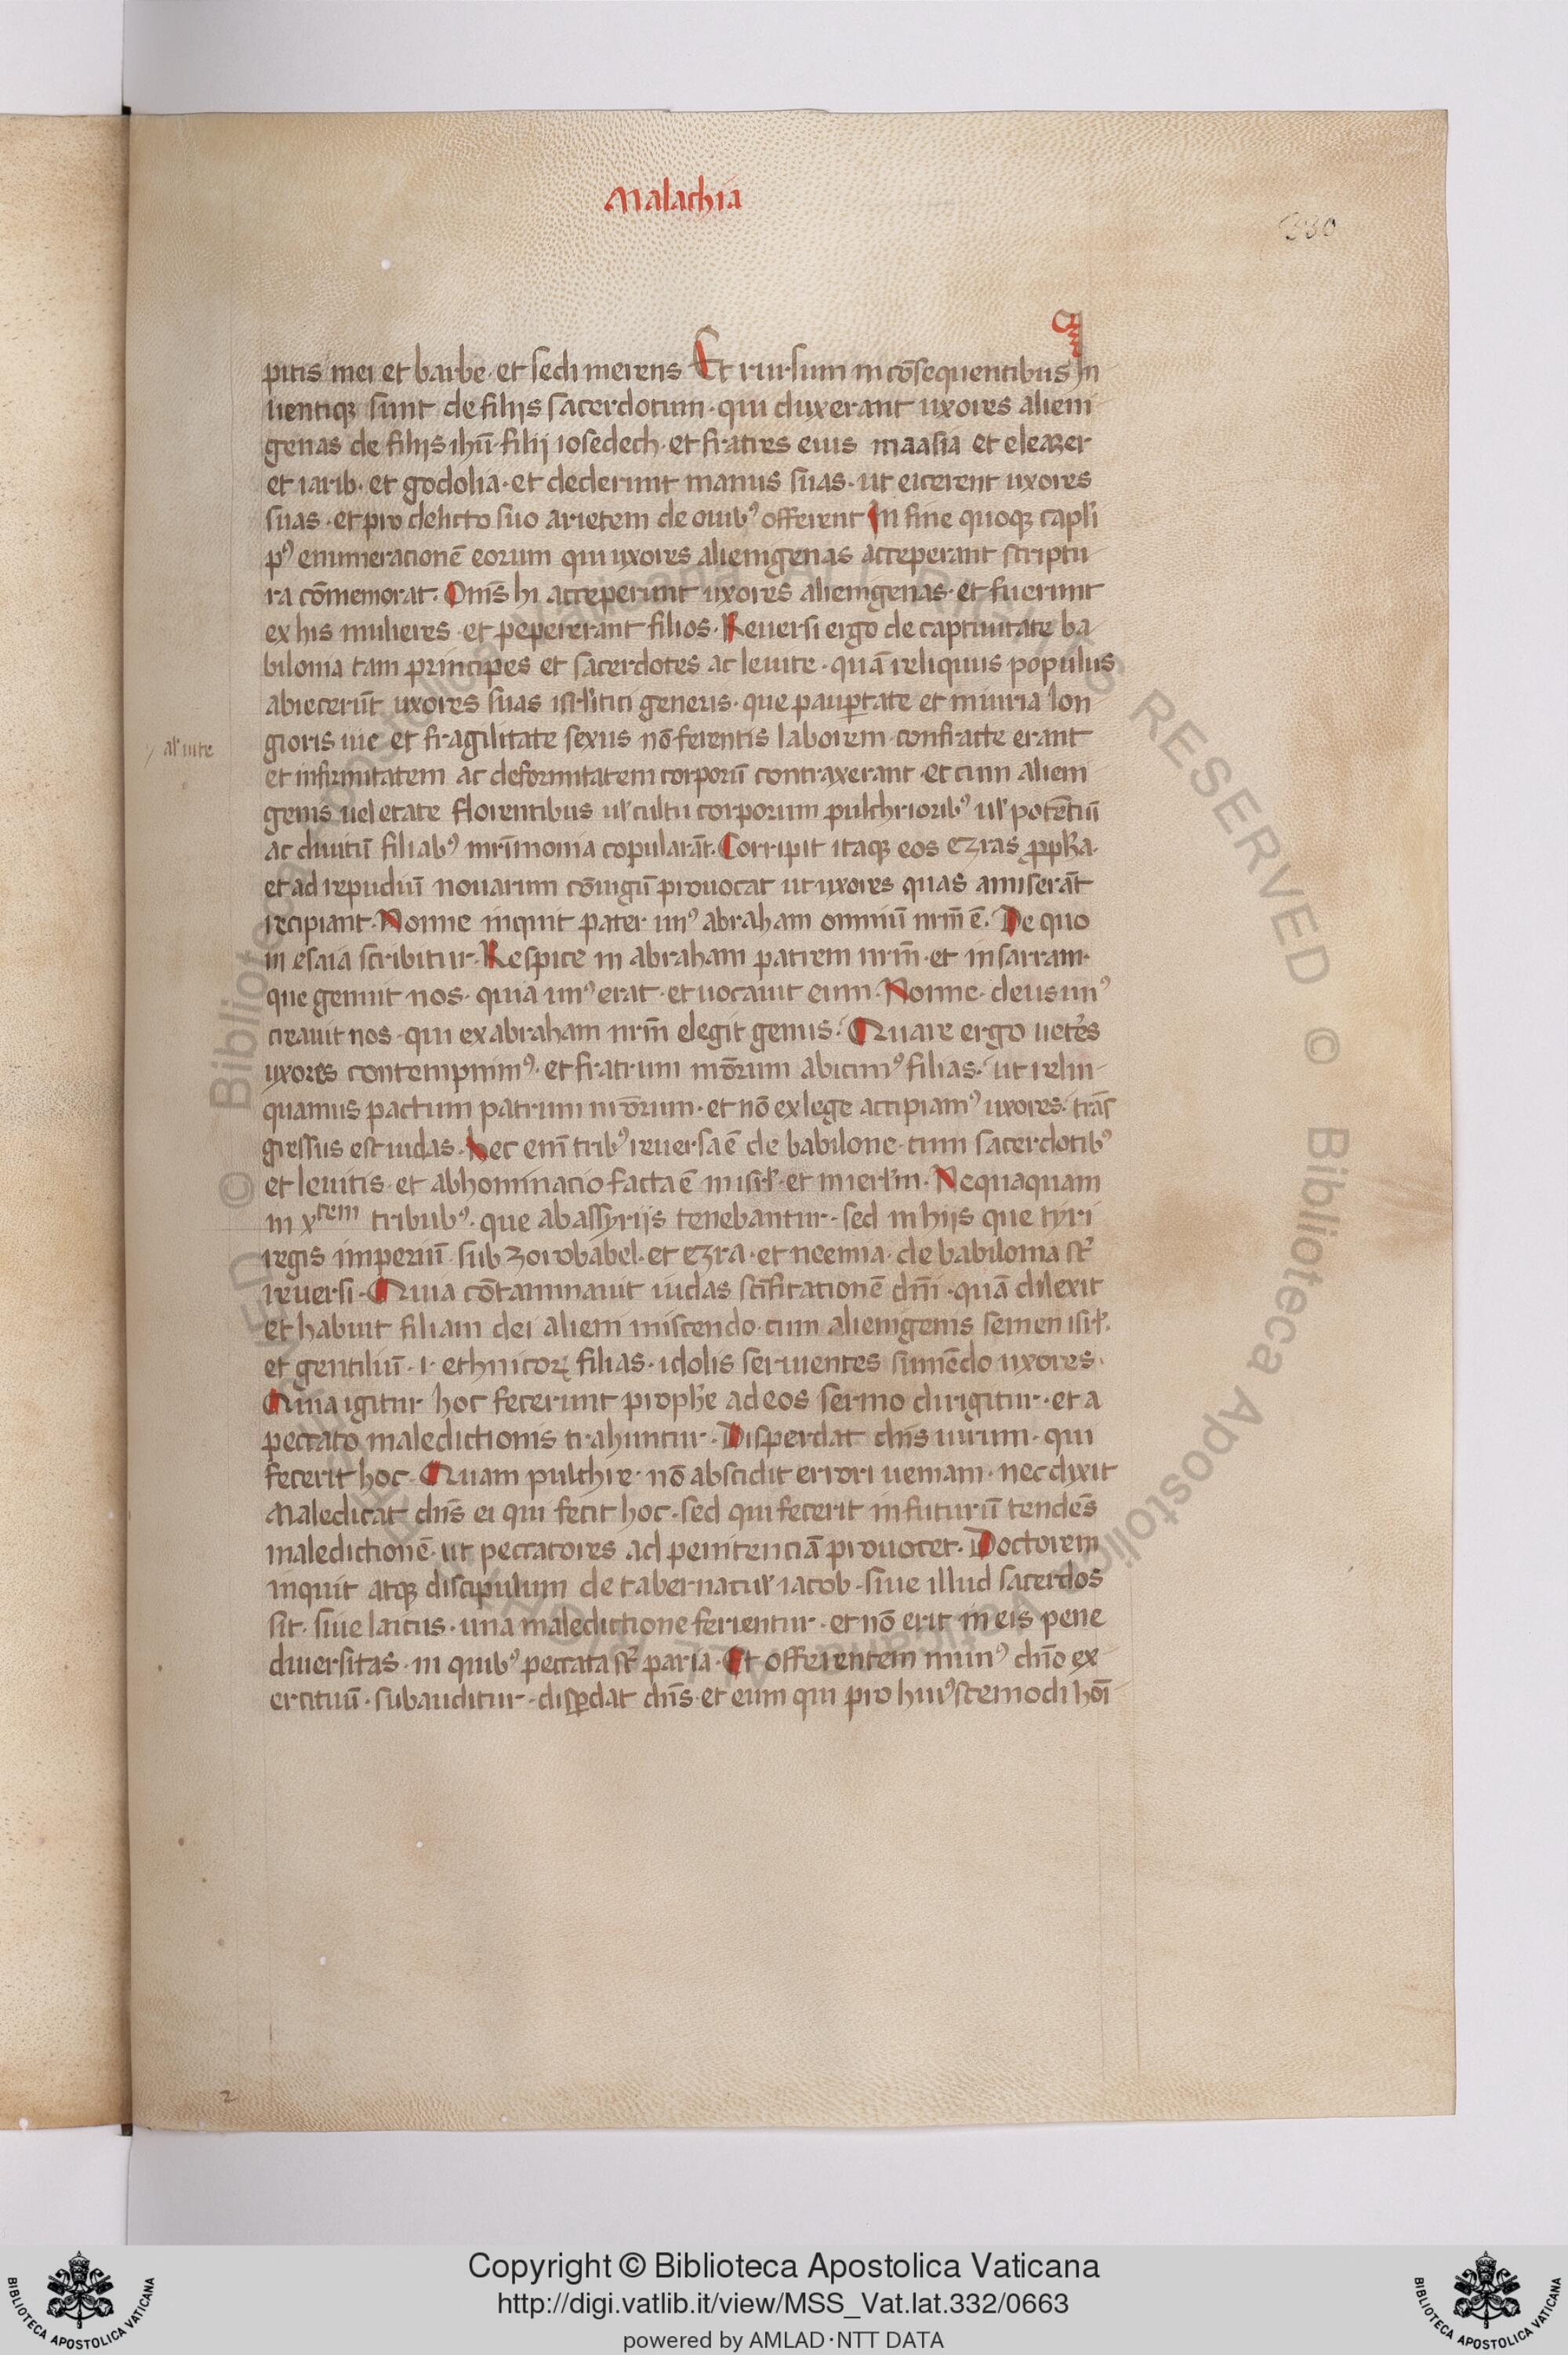 Malachia
330
pitis mei et barbe · et sedi merens Et rursum in cōsequentibus In
uentiq; sunt de filijs sacerdotum · qui duxerant uxores alieni
genas de filijs ihū · filij iosedech · et fratres eius maasia et eleazer
et iarib · et godolia · et dederunt manus suas · ut eicerent uxores
suas · et pro delicto suo arietem de ouibꝰ offerent In fine quoq; capl'i
pꝰ enumeracionē eorum qui uxores alienigenas acceperant scriptu
ra cōmemorat · Oms̄ hi acceperunt uxores alienigenas · et fuerunt
ex his mulieres · et pepererant filios · Reuersi ergo de captiuitate ba
bilonia tam principes et sacerdotes ac leuite · quā reliquus populus
abiecerūt uxores suas isrl'itici generis · que paup̄tate et iniuria lon
gioris uie et fragilitate sexus nō ferentis laborem confracte erant
al' uite
et infirmitatem ac deformitatem corporū contraxerant · et cum alieni
genis uel etate florentibus ul' cultu corporum pulchrioribꝰ ul' potētiū
ac diuitū filiabꝰ mr̄imonia copularāt · Corripit itaq; eos ezras ꝓph'a ·
et ad repudiū nouarum cōiugū prouocat ut uxores quas amiserāt
recipiant · Nonne inquit pater unꝰ abraham omniū nrm̄ ē · De quo
in esaia scribitur · Respice in abraham patrem nrm̄ · et in sarram ·
que genuit nos · quia unꝰ erat · et uocauit eum · Nonne · deus unꝰ
creauit nos · qui ex abraham nrm̄ elegit genus · Quare ergo uetēs
uxores contempnimꝰ · et fratrum nrōrum abicimꝰ filias · ut relin
quamus pactum patrum nrōrum · et nō ex lege accipiamꝰ uxores · trās
gressus est iudas · hec em̄ tribꝰ reuersa ē de babilone · cum sacerdotibꝰ
et leuitis · et abhominacio facta ē in isrl' · et in ierl'm · Nequaquam
in xtem tribubꝰ · que ab assyrijs tenebantur · sed in hijs que tyri
regis imperiū sub zorobabel · et ezra · et neemia · de babilonia st̄
reuersi · Quia cōtaminauit iudas scīficationē dni̅ · quā dilexit
et habuit filiam dei alieni miscendo · cum alienigenis semen isrl' ·
et gentiliū · i · ethnicoꝝ filias · idolis seruientes sumēdo uxores ·
Quia igitur hoc fecerunt proph'e ad eos sermo dirigitur · et a
peccato maledictionis trahuntur · Disperdat dn̄s uirum · qui
fecerit hoc · Quam pulchre · nō abscidit errori ueniam · nec dixit
Maledicat dn̄s ei qui fecit hoc · sed qui fecerit in futurū tendēs
maledictionē · ut peccatores ad penitenciā prouocet · Doctorem
inquit atq; discipulum de tabernacul' iacob · siue illud sacerdos
sit · siue laicus · una maledictione ferientur · et nō erit in eis pene
diuersitas · in quibꝰ peccata st̄ paria · Et offerentem munꝰ dn̄o ex
ercituū · subauditur · disp̄dat dn̄s · et eum qui pro huiꝰscemodi hoī
2
Copyright © Biblioteca Apostolica Vaticana
http://digi.vatlib.it/view/MSS_Vat.lat.332/0663
powered by AMLAD·NTT DATA